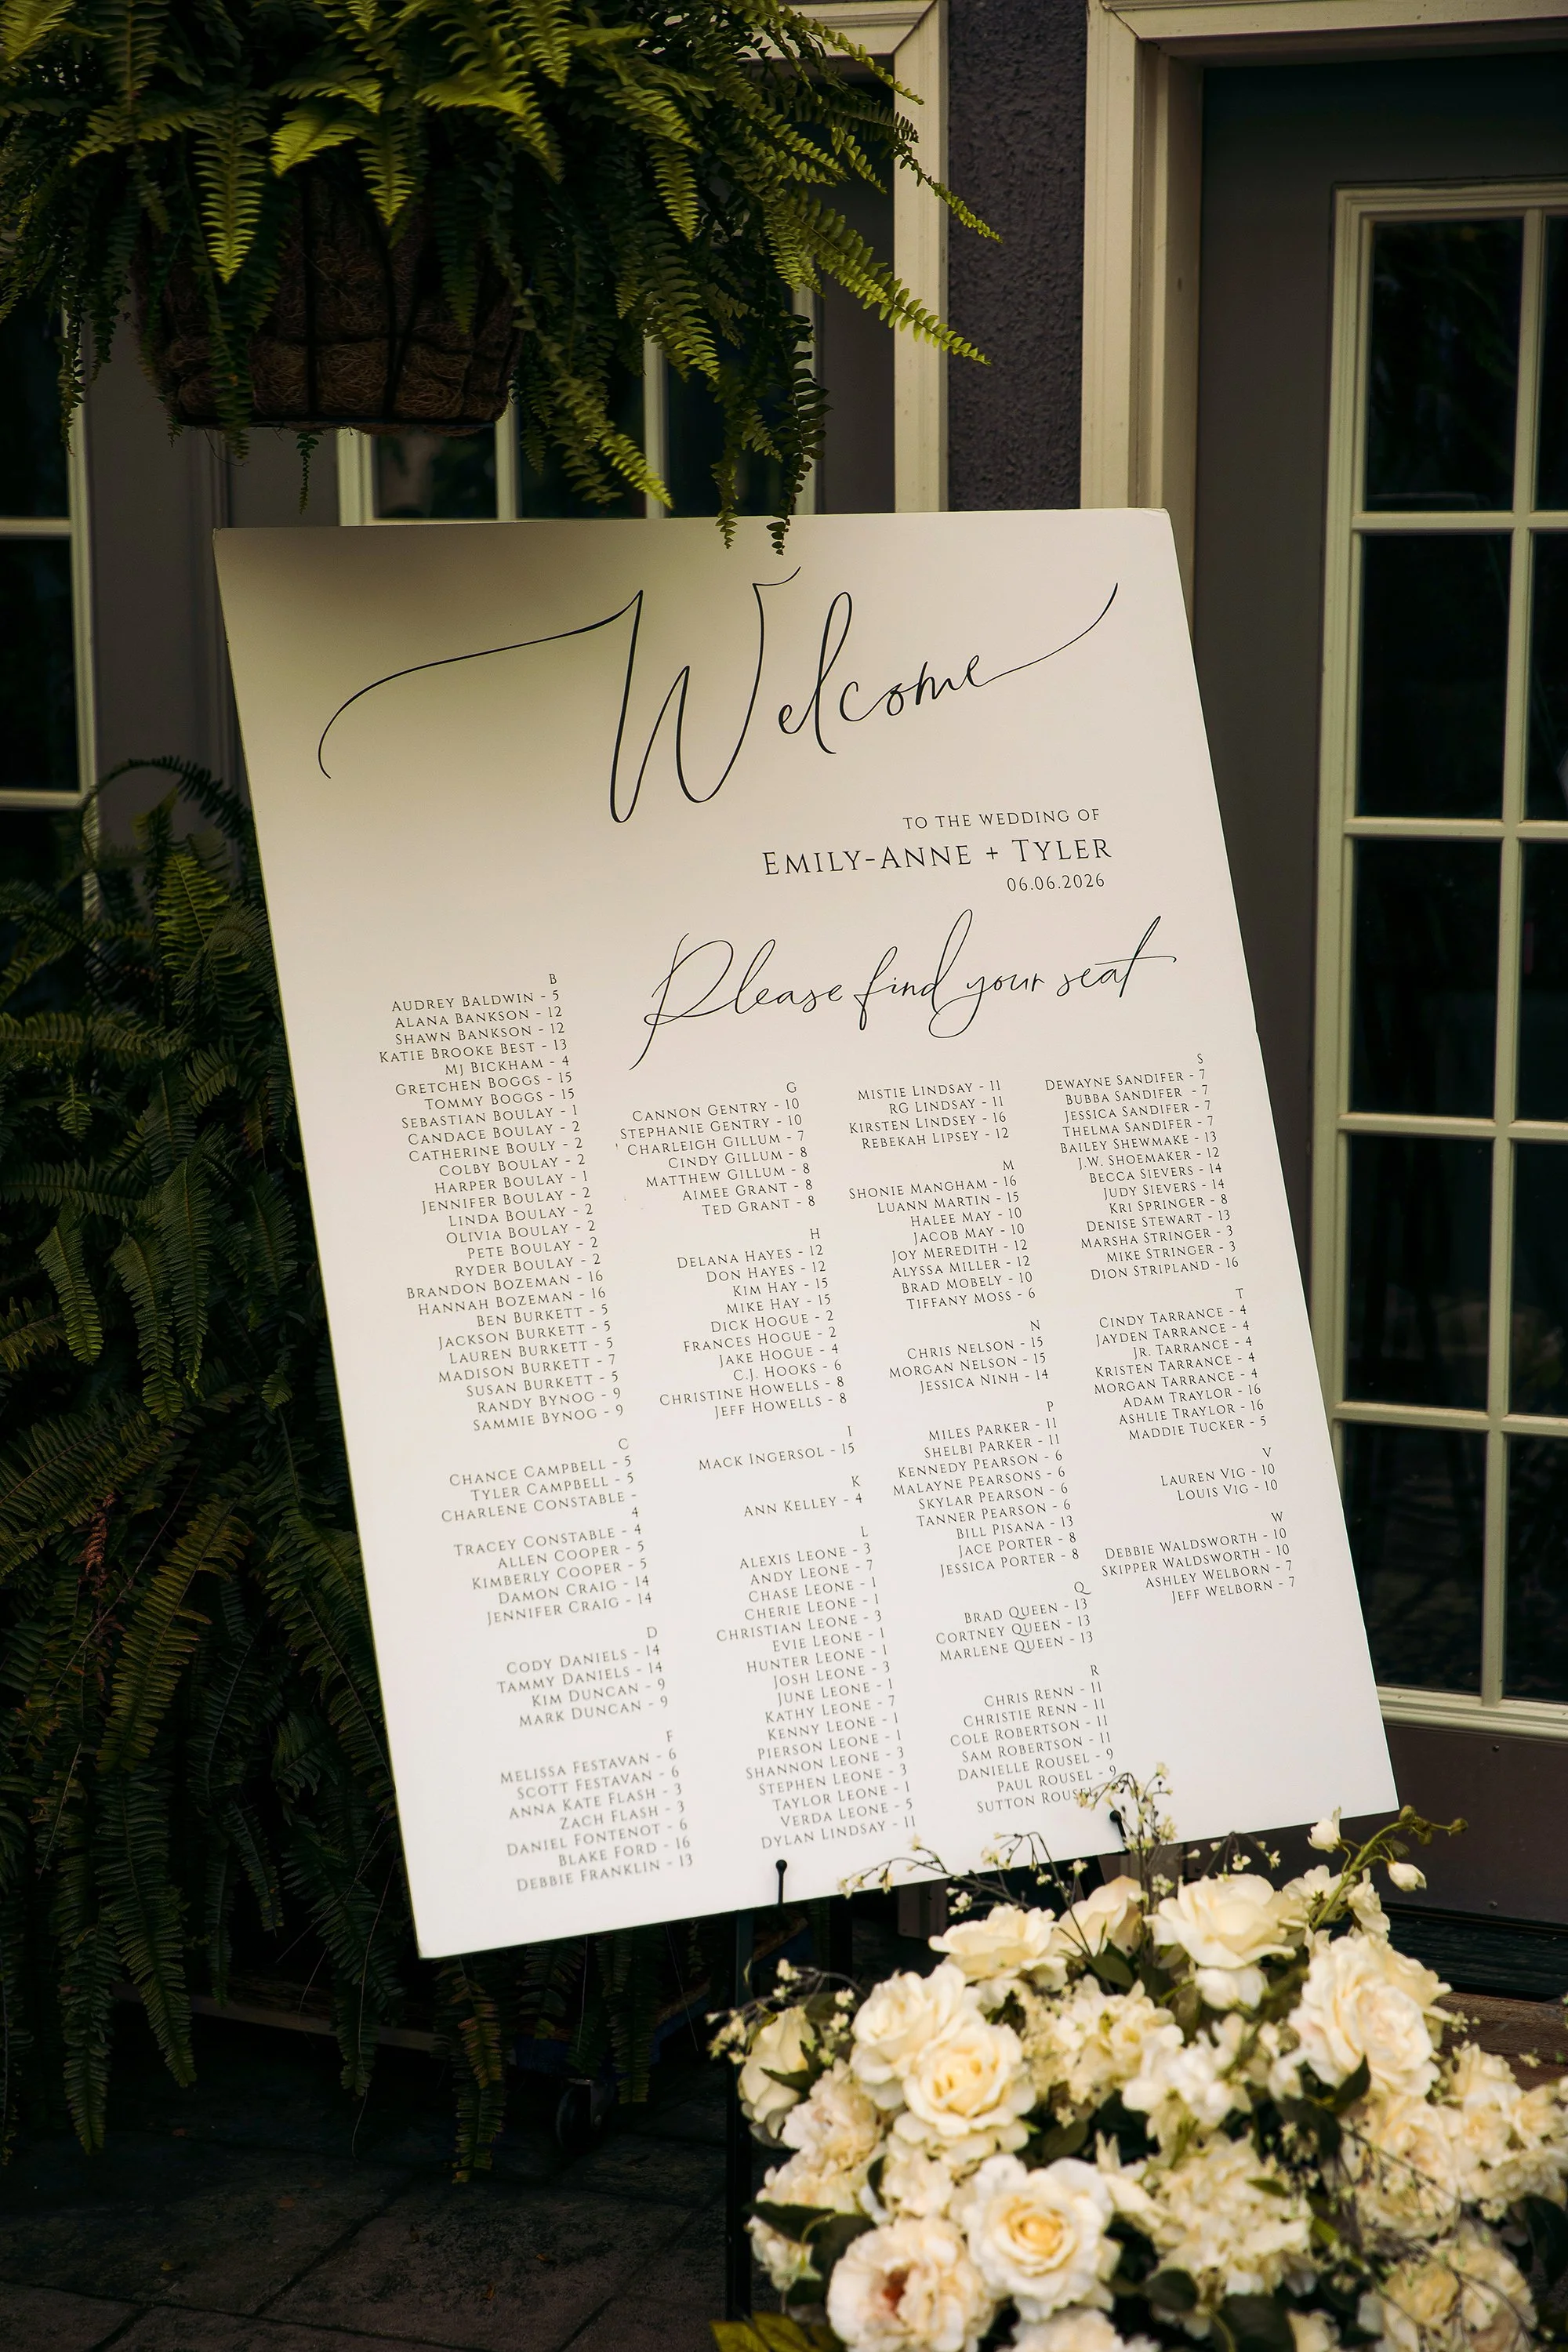 Welcome
TO THE WEDDING OF
EMILY-ANNE + TYLER
06.06.2026
Please find your seat
B
AUDREY BALDWIN - 5
ALANA BANKSON - 12
SHAWN BANKSON - 12
KATIE BROOKE BEST - 13
MJ BICKHAM - 4
GRETCHEN BOGGS - 15
TOMMY BOGGS - 15
SEBASTIAN BOULAY - 1
CANDACE BOULAY - 2
CATHERINE BOULY - 2
COLBY BOULAY - 2
HARPER BOULAY - 1
JENNIFER BOULAY - 2
LINDA BOULAY - 2
OLIVIA BOULAY - 2
PETE BOULAY - 2
RYDER BOULAY - 2
BRANDON BOZEMAN - 16
HANNAH BOZEMAN - 16
BEN BURKETT - 5
JACKSON BURKETT - 5
LAUREN BURKETT - 5
MADISON BURKETT - 7
SUSAN BURKETT - 5
RANDY BYNOG - 9
SAMMIE BYNOG - 9
C
CHANCE CAMPBELL - 5
TYLER CAMPBELL - 5
CHARLENE CONSTABLE -
4
TRACEY CONSTABLE - 4
ALLEN COOPER - 5
KIMBERLY COOPER - 5
DAMON CRAIG - 14
JENNIFER CRAIG - 14
D
CODY DANIELS - 14
TAMMY DANIELS - 14
KIM DUNCAN - 9
MARK DUNCAN - 9
F
MELISSA FESTAVAN - 6
SCOTT FESTAVAN - 6
ANNA KATE FLASH - 3
ZACH FLASH - 3
DANIEL FONTENOT - 6
BLAKE FORD - 16
DEBBIE FRANKLIN - 13
G
CANNON GENTRY - 10
STEPHANIE GENTRY - 10
CHARLEIGH GILLUM - 7
CINDY GILLUM - 8
MATTHEW GILLUM - 8
AIMEE GRANT - 8
TED GRANT - 8
H
DELANA HAYES - 12
DON HAYES - 12
KIM HAY - 15
MIKE HAY - 15
DICK HOGUE - 2
FRANCES HOGUE - 2
JAKE HOGUE - 4
C.J. HOOKS - 6
CHRISTINE HOWELLS - 8
JEFF HOWELLS - 8
I
MACK INGERSOL - 15
K
ANN KELLEY - 4
L
ALEXIS LEONE - 3
ANDY LEONE - 7
CHASE LEONE - 1
CHERIE LEONE - 1
CHRISTIAN LEONE - 3
EVIE LEONE - 1
HUNTER LEONE - 1
JOSH LEONE - 3
JUNE LEONE - 1
KATHY LEONE - 7
KENNY LEONE - 1
PIERSON LEONE - 1
SHANNON LEONE - 3
STEPHEN LEONE - 3
TAYLOR LEONE - 1
VERDA LEONE - 5
DYLAN LINDSAY - 11
MISTIE LINDSAY - 11
RG LINDSAY - 11
KIRSTEN LINDSEY - 16
REBEKAH LIPSEY - 12
M
SHONIE MANGHAM - 16
LUANN MARTIN - 15
HALEE MAY - 10
JACOB MAY - 10
JOY MEREDITH - 12
ALYSSA MILLER - 12
BRAD MOBELY - 10
TIFFANY MOSS - 6
N
CHRIS NELSON - 15
MORGAN NELSON - 15
JESSICA NINH - 14
P
MILES PARKER - 11
SHELBI PARKER - 11
KENNEDY PEARSON - 6
MALAYNE PEARSONS - 6
SKYLAR PEARSON - 6
TANNER PEARSON - 6
BILL PISANA - 13
JACE PORTER - 8
JESSICA PORTER - 8
Q
BRAD QUEEN - 13
CORTNEY QUEEN - 13
MARLENE QUEEN - 13
R
CHRIS RENN - 11
CHRISTIE RENN - 11
COLE ROBERTSON - 11
SAM ROBERTSON - 11
DANIELLE ROUSEL - 9
PAUL ROUSEL - 9
SUTTON
S
DEWAYNE SANDIFER - 7
BUBBA SANDIFER - 7
JESSICA SANDIFER - 7
THELMA SANDIFER - 7
BAILEY SHEWMAKE - 13
J.W. SHOEMAKER - 12
BECCA SIEVERS - 14
JUDY SIEVERS - 14
KRI SPRINGER - 8
DENISE STEWART - 13
MARSHA STRINGER - 3
MIKE STRINGER - 3
DION STRIPLAND - 16
T
CINDY TARRANCE - 4
JAYDEN TARRANCE - 4
JR. TARRANCE - 4
KRISTEN TARRANCE - 4
MORGAN TARRANCE - 4
ADAM TRAYLOR - 16
ASHLIE TRAYLOR - 16
MADDIE TUCKER - 5
V
LAUREN VIG - 10
LOUIS VIG - 10
W
DEBBIE WALDSWORTH - 10
SKIPPER WALDSWORTH - 10
ASHLEY WELBORN - 7
JEFF WELBORN - 7